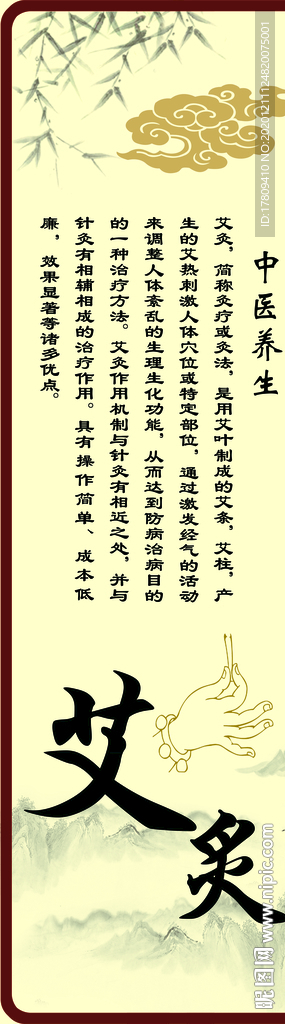 中医养生
艾灸，简称灸疗或灸法，是用艾叶制成的艾条，艾柱，产
生的艾热刺激人体穴位或特定部位，通过激发经气的活动
来调整人体紊乱的生理生化功能，从而达到防病治病目的
的一种治疗方法。艾灸作用机制与针灸有相近之处，并与
针灸有相辅相成的治疗作用。具有操作简单、成本低
廉，效果显著等诸多优点。
艾灸
昵图网 www.nipic.com
ID:17809410 NO:20201211124820075001